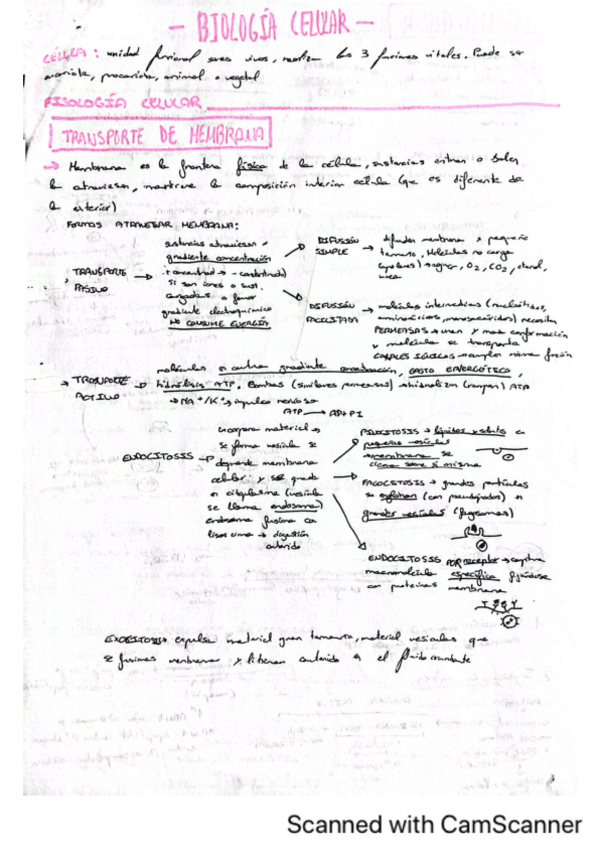 - BIOLOGÍA CELULAR -
CÉLULA: unidad funcional seres vivos, realiza las 3 funciones vitales. Puede ser
eucariota, procariota, animal o vegetal
FISIOLOGÍA CELULAR
TRANSPORTE DE MEMBRANA
→ Membrana es la frontera física de la célula, sustancias entran o salen
la atraviesan, mantiene la composición interior célula (que es diferente de
la exterior)
FORMAS ATRAVESAR MEMBRANA:
→ TRANSPORTE PASIVO →
sustancias atraviesan
gradiente concentración
(+ concentrado → - concentrado)
si son iones o sust.
cargadas a favor
gradiente electroquímico
NO CONSUME ENERGÍA
DIFUSIÓN SIMPLE →
difunden membrana x pequeño
tamaño, Moléculas no carga
(apolares) → agua, O2, CO2, etanol,
urea
DIFUSIÓN FACILITADA →
moléculas intermedias (nucleótidos,
aminoácidos, monosacáridos) necesitan
PERMEASAS → unen y conformación
y molécula se transporta
CANALES IÓNICOS → misma función
→ TRANSPORTE ACTIVO →
moléculas en contra gradiente concentración, GASTO ENERGÉTICO,
hidrólisis ATP, Bombas (similares permeasas) → hidrolizan (rompen) ATP
→ NA+/K+ → impulso nervioso
ATP → ADP + PI
ENDOCITOSIS →
incorpora material →
se forma vesícula se
desprende membrana
celular y se queda
en citoplasma (vesícula
se llama endosoma)
endosoma fusiona con
lisosoma → digestión
contenido
PINOCITOSIS → líquidos y solutos en
pequeñas vesículas
→ membrana se
cierra sobre sí misma
FAGOCITOSIS → grandes partículas
se engloban (con pseudópodos) en
grandes vesículas (fagosomas)
ENDOCITOSIS POR receptor → captura
macromolécula específica fijándose
con proteínas membrana
EXOCITOSIS → expulsa material gran tamaño, material vesículas que
se fusionan membrana y liberan contenido en el fluido circundante
Scanned with CamScanner